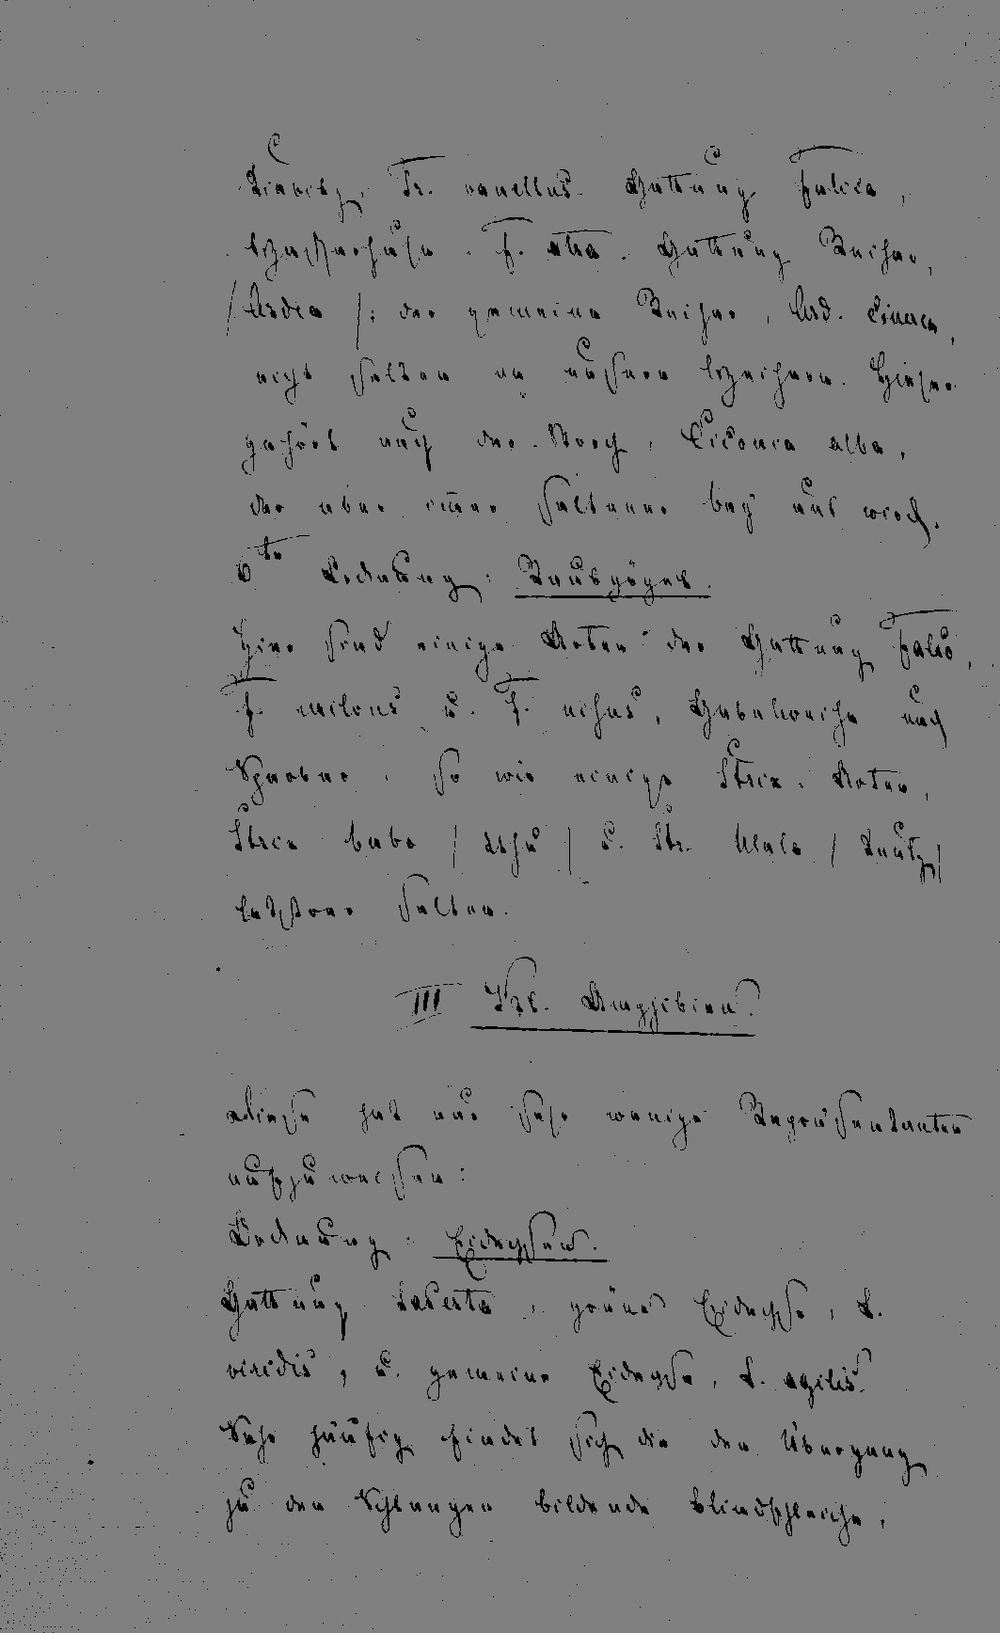 Kiewitz, Tr. vanellus. Gattung Fulica,
Wasserhuhn. F. atra. Gattung Reiher,
/Ardea/: der gemeine Reiher, Ard. cinerea,
nicht selten an unsern Weihern. Hieher
gehört auch der Storch, Ciconia alba,
der aber im̅er seltener bey uns wird.
6te Ordnung: Raubvögel.
Hier sind einige Arten der Gattung Falco,
F. milvus u. F. nisus, Gabelweihe und
Sperber, so wie einige Strix-Arten,
Strix bubo /Uhu/ u. Str. Ulula /Kautz/
letztere selten.
III Kl. Amphibien.
Diese hat nur sehr wenige Repräsentanten
aufzuweisen:
Ordnung: Eidechsen.
Gattung Lacerta, grüne Eidechse, L.
viridis, u. gemeine Eidechse, L. agilis.
Sehr häufig findet sich die den Übergang
zu den Schlangen bildende Blindschleiche,